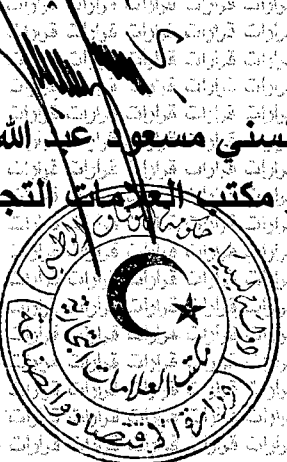 سني مسعود عبد الله
ر مكتب العلامات التج
دولة ليبيا
حكومة الوفاق الوطني
مكتب العلامات التجارية
وزارة الاقتصاد والصناعة